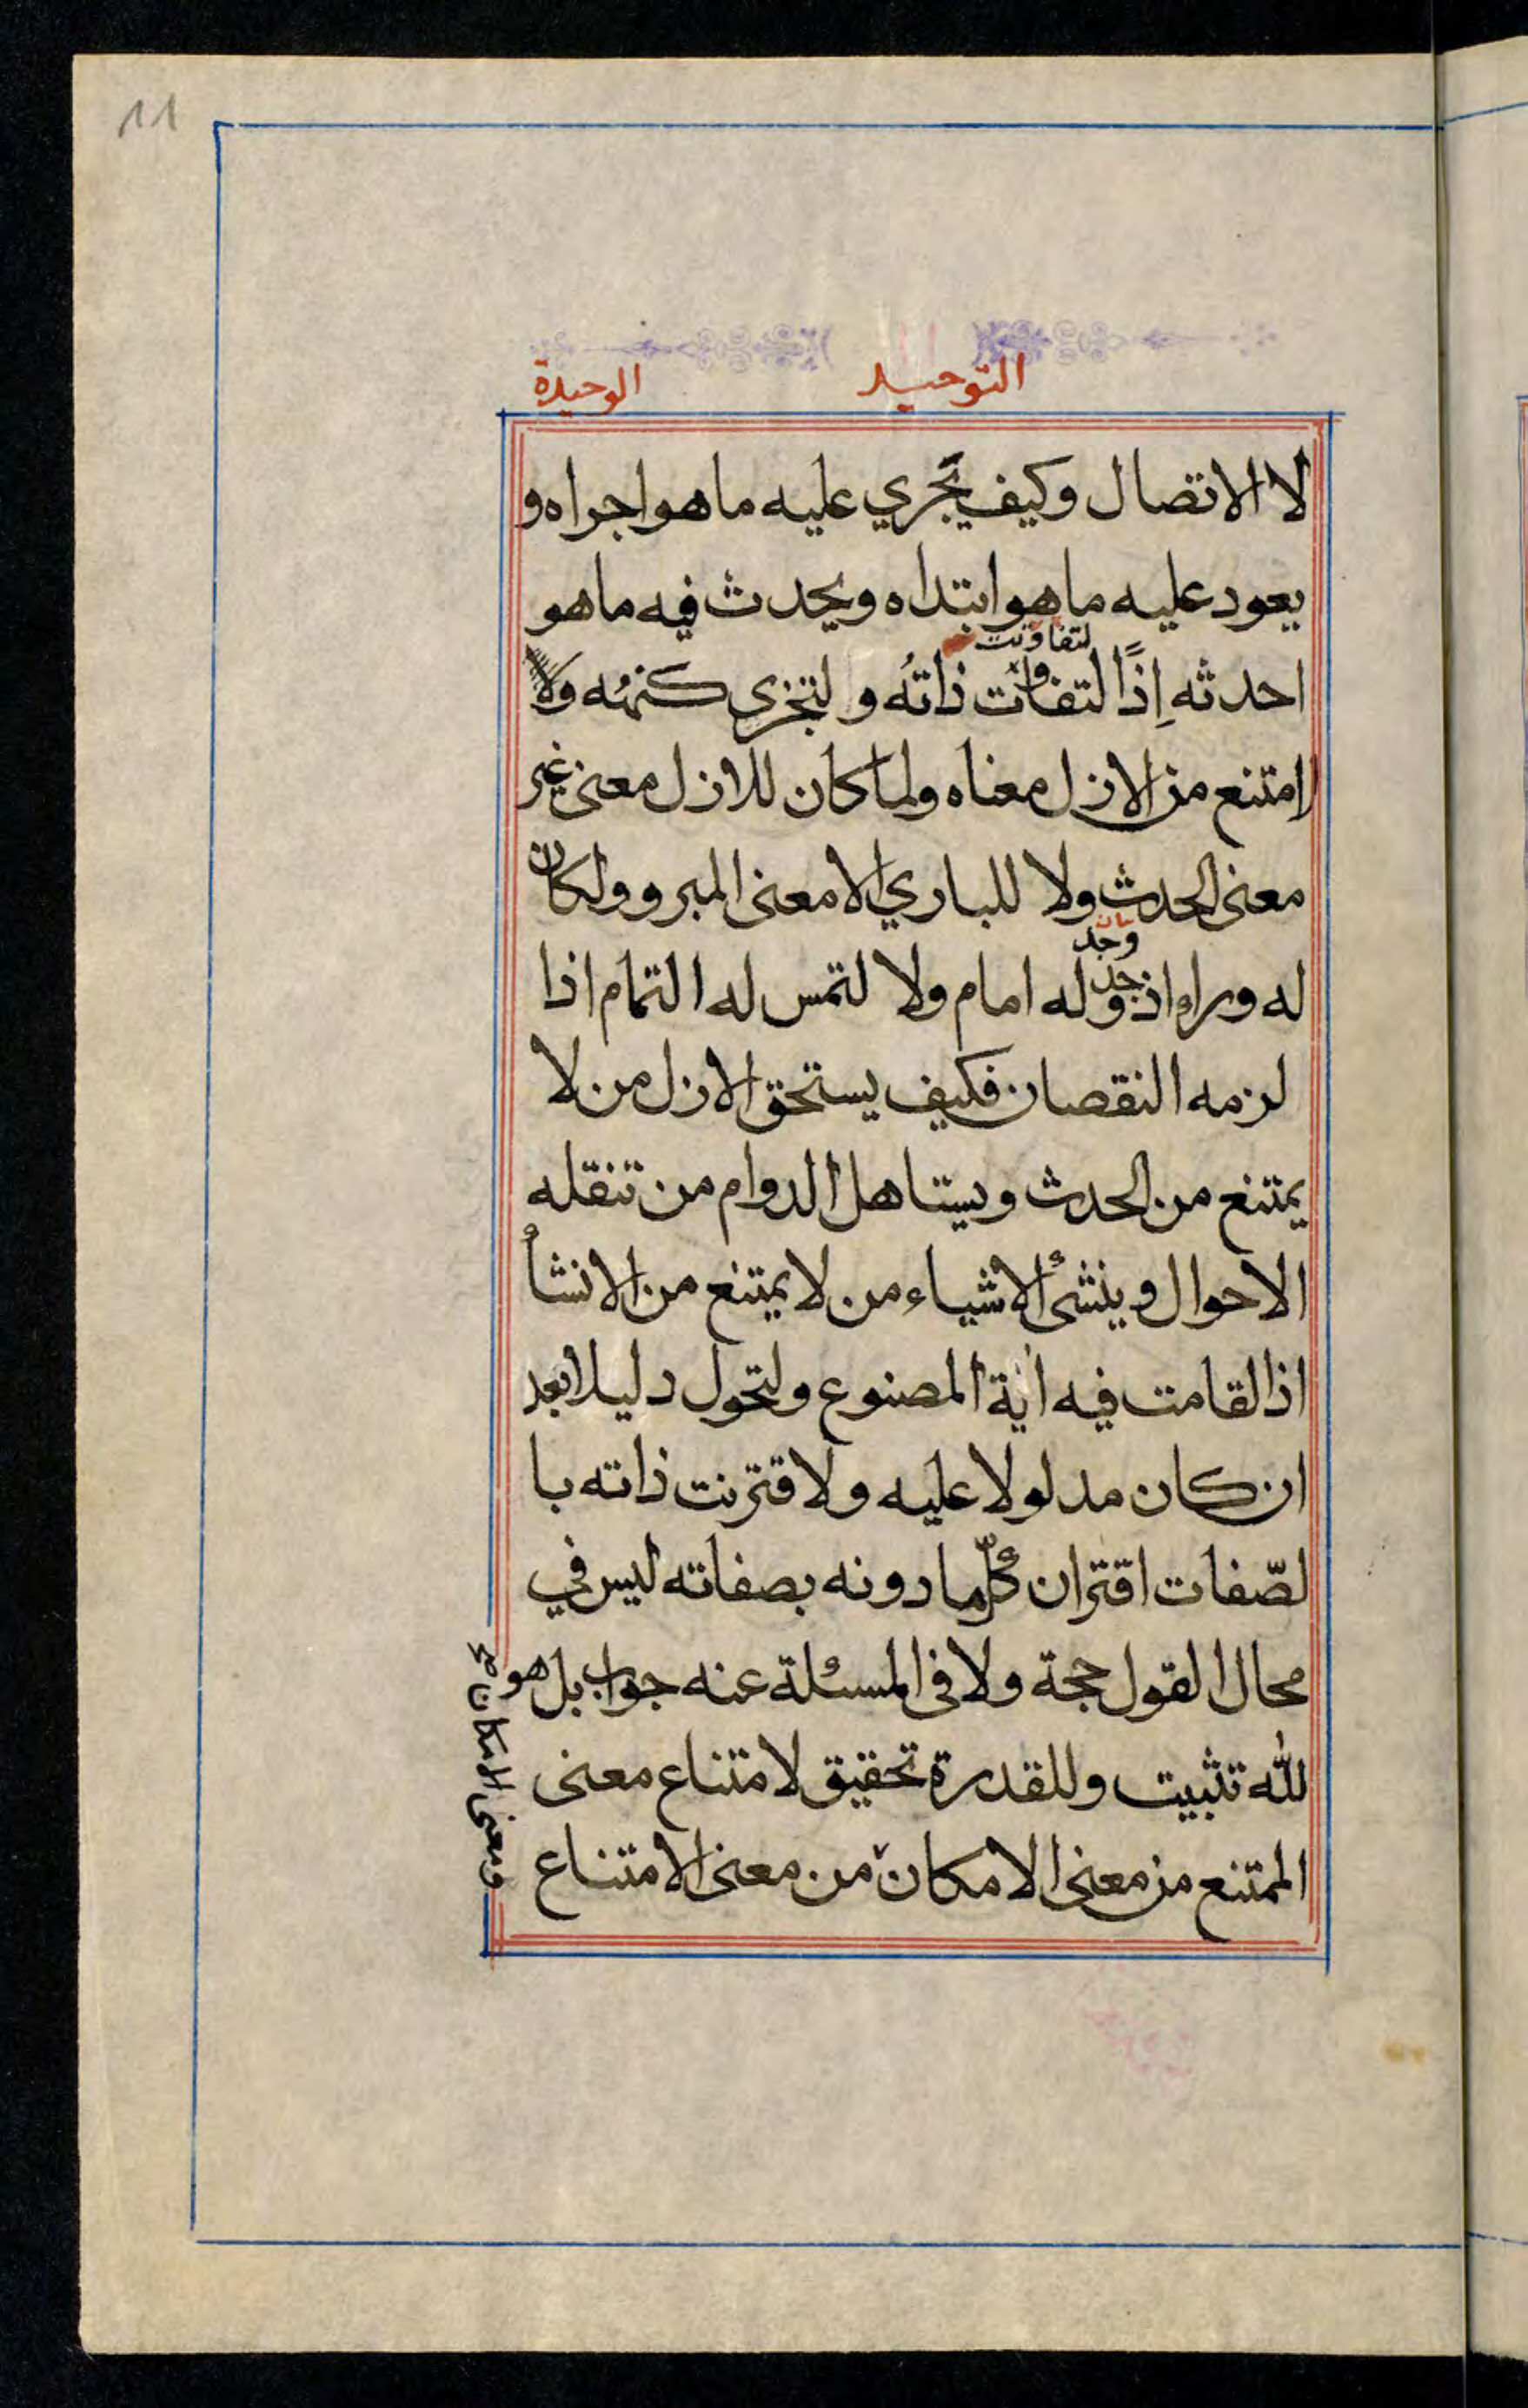 11
التوحيد الوحيدة
لا الاتصال وكيف يجري عليه ما هو اجراه و
يعود عليه ما هو ابتداه ويحدث فيه ما هو
لتفاوتت
احدثه إذًا لتفاوتت ذاتُه ولتجزى كنهُه ولا
امتنع من الازل معناه ولما كان للازل معنى غير
معنى الحدث ولا للباري الا معنى المبرو ولكان
وجد
له وراء اذ وجد له امام ولا لتمس له التمام اذا
لزمه النقصان فكيف يستحق الازل من لا
يمتنع من الحدث ويستاهل الدوام من تنقله
الاحوال وينشئ الاشياء من لا يمتنع من الانشأ
اذا لقامت فيه اية المصنوع ولتحول دليلا بعد
ان كان مدلولا عليه ولاقترنت ذاته با
لصّفات اقتران كلّما دونه بصفاته ليس في
محال القول حجة ولا في المسئلة عنه جواب بل هو
لله تثبيت وللقدرة تحقيق لامتناع معنى
الممتنع من معنى الامكان من معنى الامتناع
ومعنى الامكان صح